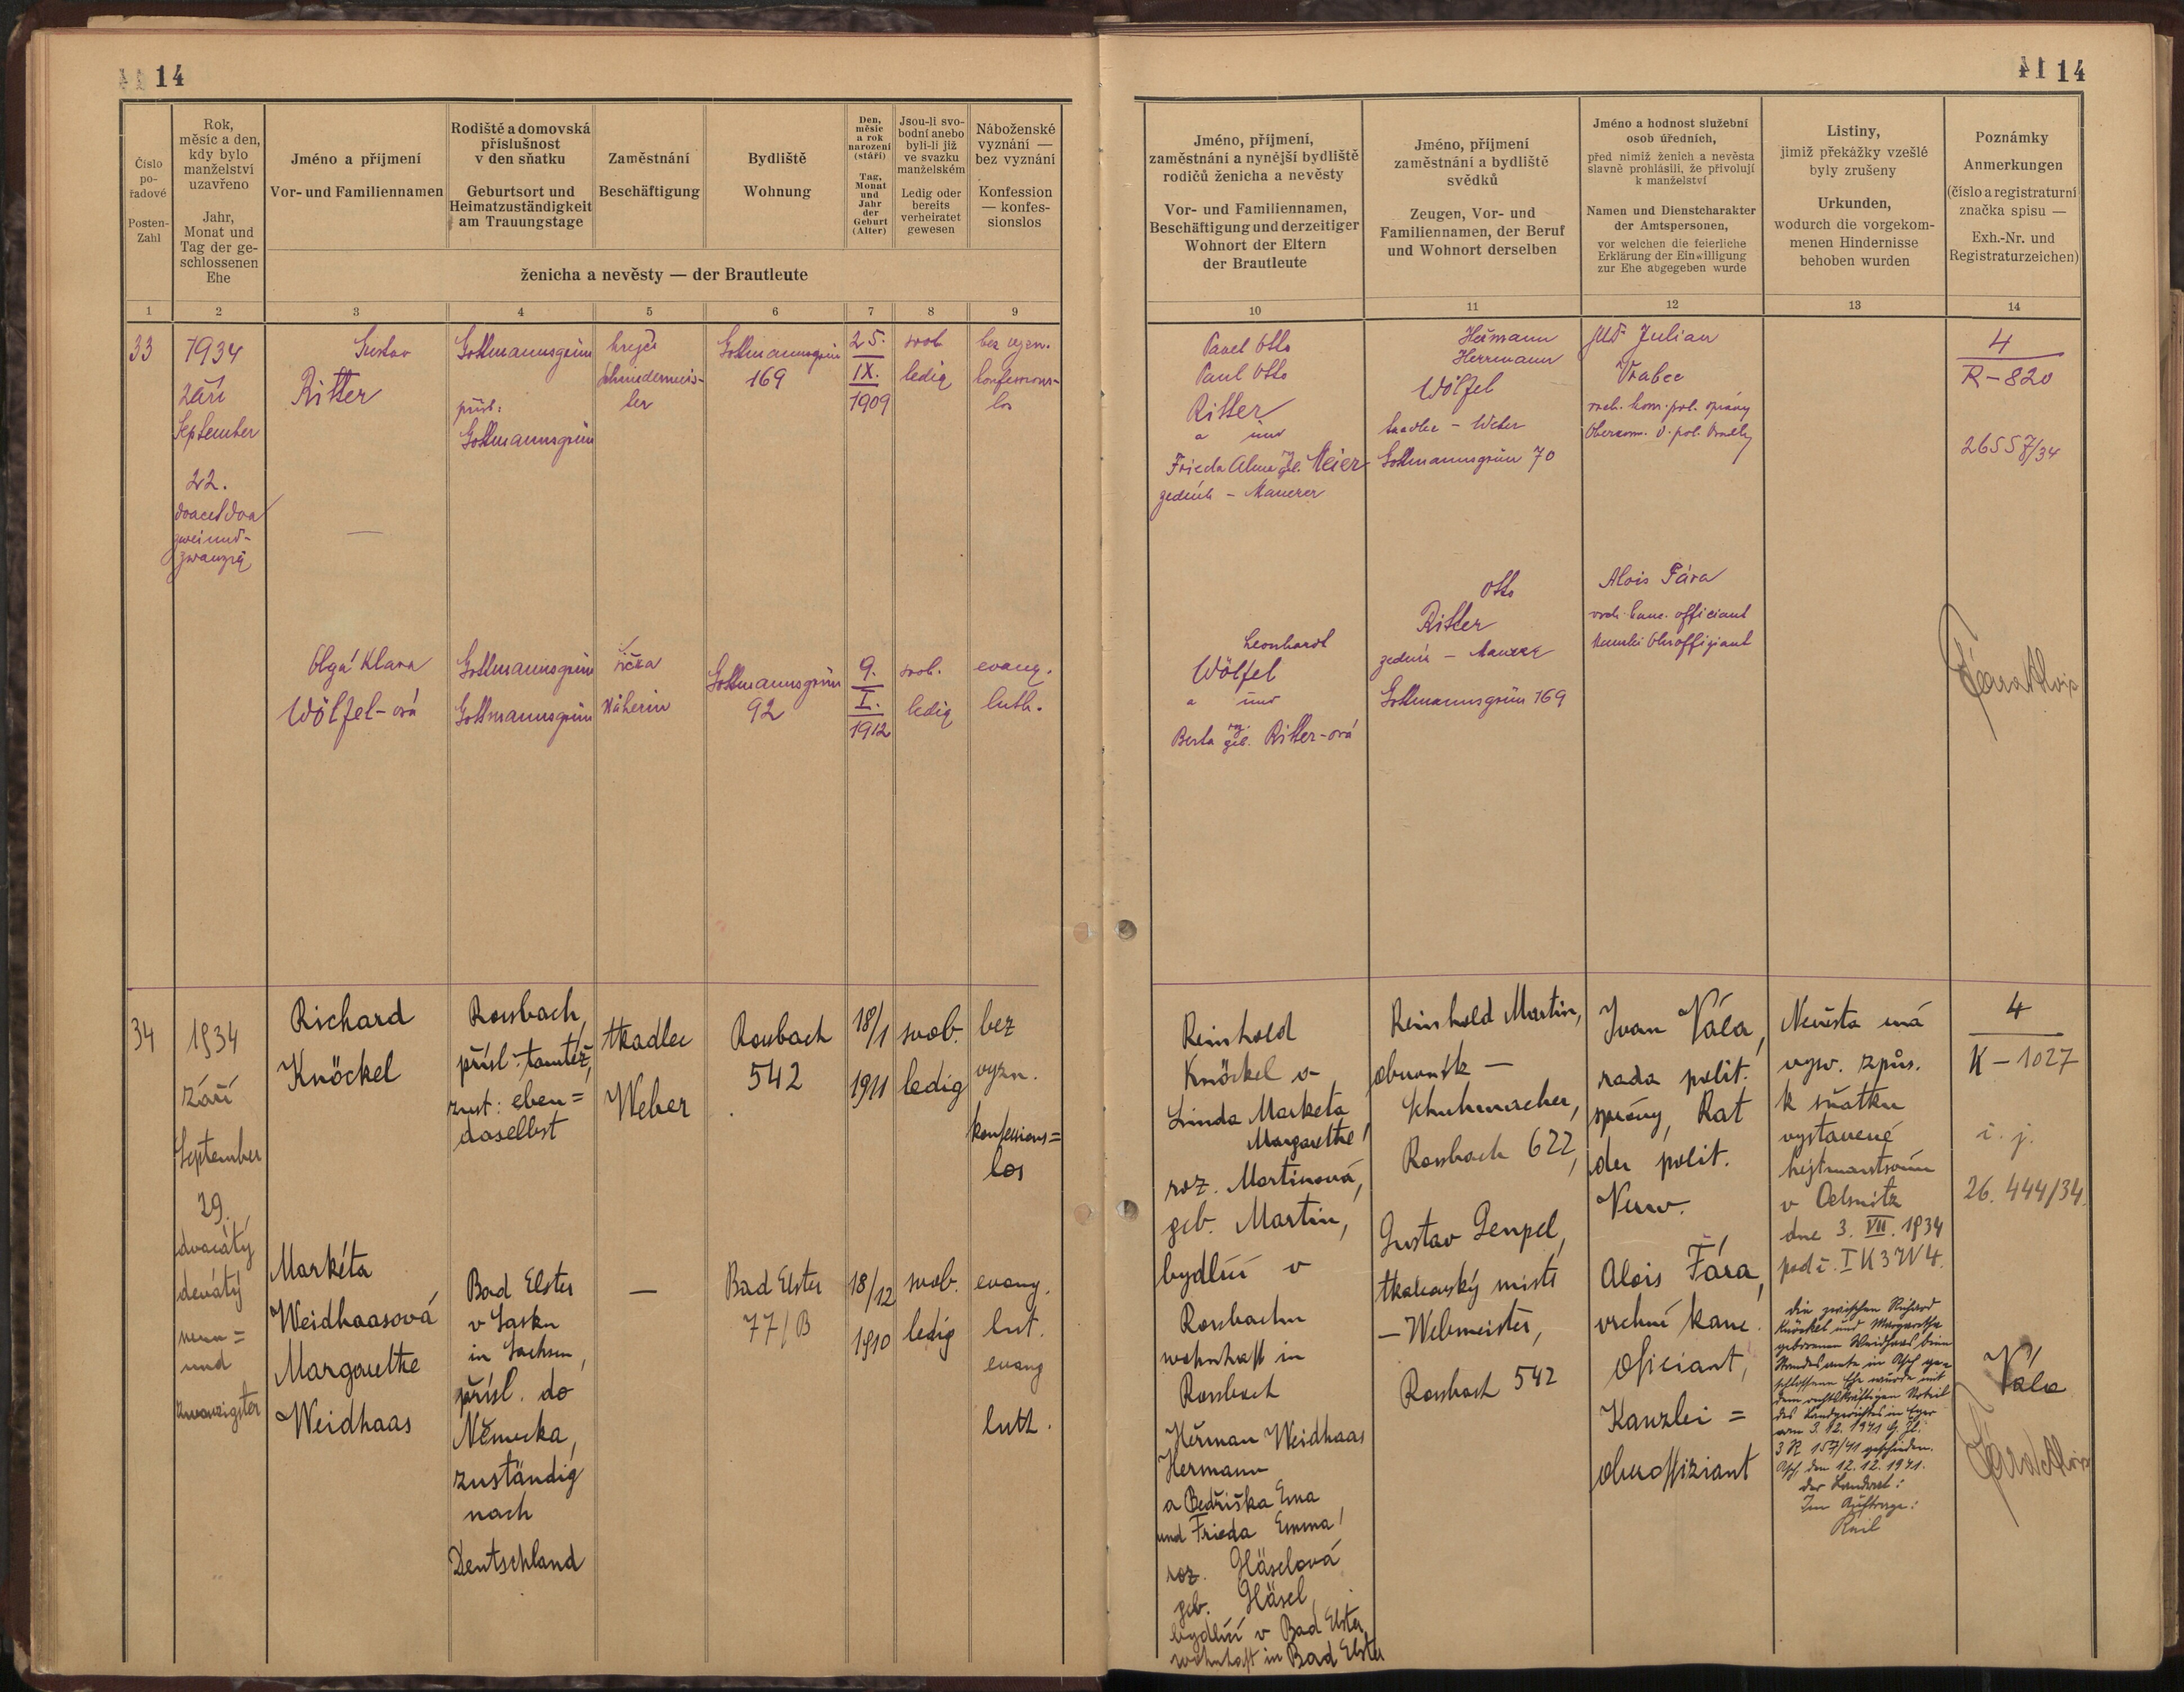 14
41 14
Číslo
po-
řadové
Posten-
Zahl
Rok,
měsíc a den,
kdy bylo
manželství
uzavřeno
Jahr,
Monat und
Tag der ge-
schlossenen
Ehe
Jméno a přijmení
Vor- und Familiennamen
Rodiště a domovská
příslušnost
v den sňatku
Geburtsort und
Heimatzuständigkeit
am Trauungstage
Zaměstnání
Beschäftigung
Bydliště
Wohnung
Den,
měsíc
a rok
narození
(stáří)
Tag,
Monat
und
Jahr
der
Geburt
(Alter)
Jsou-li svo-
bodni anebo
byli-li již
ve svazku
manželském
Ledig oder
bereits
verheiratet
gewesen
Náboženské
vyznání —
bez vyznání
Konfession
— konfes-
sionslos
ženicha a nevěsty — der Brautleute
Jméno, přijmení,
zaměstnání a nynější bydliště
rodičů ženicha a nevěsty
Vor- und Familiennamen,
Beschäftigung und derzeitiger
Wohnort der Eltern
der Brautleute
Jméno, přijmení
zaměstnání a bydliště
svědků
Zeugen, Vor- und
Familiennamen, der Beruf
und Wohnort derselben
Jméno a hodnost služební
osob úředních,
před nimiž ženich a nevěsta
slavně prohlásili, že přivolují
k manželství
Namen und Dienstcharakter
der Amtspersonen,
vor welchen die feierliche
Erklärung der Einwilligung
zur Ehe abgegeben wurde
Listiny,
jimiž překážky vzešlé
byly zrušeny
Urkunden,
wodurch die vorgekom-
menen Hindernisse
behoben wurden
Poznámky
Anmerkungen
(číslo a registraturní
značka spisu —
Exh.-Nr. und
Registraturzeichen)
1 2 3 4 5 6 7 8 9 10 11 12 13 14
33
1934
září
September
22.
dvacet dva
zwei und-
zwanzig
Gustav
Ritter
—
Gottmannsgrün
přísl:
Gottmannsgrün
krejčí
Schneidermeis-
ter
Gottmannsgrün
169
25.
IX.
1909
svob.
ledig
bez vyzn.
konfessions-
los
Pavel Otto
Paul Otto
Ritter
a und
Frieda Alma roz. geb. Meier
zedník – Maurer
Heřmann
Herrmann
Wölfel
tkadlec – Weber
Gottmannsgrün 70
JUDr Julian
Vrabec
vrch. kom. pol. správy
Oberkom. d. pol. Verwltg
4
R – 820
26557/34
Olga Klara
Wölfel-ová
Gottmannsgrün
Gottmannsgrün
šička
Näherin
Gottmannsgrün
92
9.
I.
1912
svob.
ledig
evang.
luth.
Leonhardt
Wölfel
a und
Berta roz. geb. Ritter-ová
Otto
Ritter
zedník – Maurer
Gottmannsgrün 169
Alois Fára
vrch. kanc. officiant
Kanzlei Oberoffiziant
Fára Alois
34
1934
září
September
29.
dvacátý
devátý
neun=
und
zwanzigster
Richard
Knöckel
Rossbach,
přísl: tamtéž,
zust: eben=
daselbst
tkadlec
Weber
Rossbach
542
18/1
1911
svob.
ledig
bez
vyzn.
konfessions=
los
Markéta
Weidhaasová
Margarethe
Weidhaas
Bad Elster
v Sasku
in Sachsen,
přísl. do
Německa,
zuständig
nach
Deutschland
—
Bad Elster
77/B
18/12
1910
svob.
ledig
evang.
lut.
evang
luth.
Reinhold
Knöckel a
Linda Marketa
Margarethe
roz. Martinová,
geb. Martin,
bydlící v
Rossbachu
wohnhaft in
Rossbach
Heřman Weidhaas
Hermann
a Bedřiška Ema
und Frieda Emma
roz. Gläselová
geb. Gläsel
bydlící v Bad Elster
wohnhaft in Bad Elster
Reinhold Martin,
obuvník —
Schuhmacher,
Rossbach 622,
Gustav Penpel,
tkalcovský mistr
— Webmeister,
Rossbach 542
Ivan Vála,
rada polit.
správy, Rat
der polit.
Verw.
Alois Fára,
vrchní kanc.
oficiant,
Kanzlei =
oberoffiziant
Nevěsta má
vysv. způs.
k sňatku
vystavené
hejtmanstvím
v Oelsnitz
dne 3. VII. 1934
pod č. I K 3 W 4.
Die zwischen Richard
Knöckel und Margarethe
geborenen Weidhaas beim
Standesamte in Asch ge=
schlossene Ehe wurde mit
dem rechtskräftigen Urteil
des Landgerichtes in Eger
vom 3. 12. 1941 G. Zl.
3 R 157/41 geschieden.
Asch, den 12. 12. 1941.
Der Landrat:
Im Auftrage:
4
K – 1027
i. j.
26.444/34.
Vála
Fára Alois